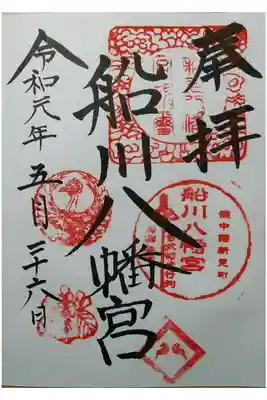 奉拝
船川八幡宮
令和元年五月二十六日
船川八幡宮
備中國新見町